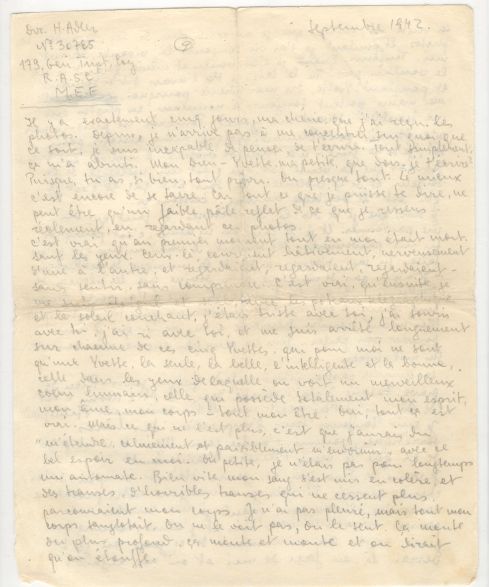 Dvr. H. Adler
N° 30765
179, Gen. Trspt. Coy
R.A.S.C
M.E.F
Septembre 1942.
Il y a exactement cinq jours, ma chérie, que j'ai reçu les
photos. Depuis, je n'arrive pas à me concentrer sur quoi que
ce soit, je suis incapable de penser, de t'écrire. Tout simplement,
ça m'a abruti. Mon Dieu - Yvette, ma petite, que dois-je t'écrire?
Puisque, tu as, si bien, tout prévu. Ou presque tout. Le mieux
c'est encore de se taire. Car tout ce que je puisse te dire, ne
peut être qu'un faible, pâle reflet de ce que je ressens
réellement, en regardant ces photos.
C'est vrai qu'au premier moment tout en moi était mort,
sauf les yeux. Ceux-ci couraient hâtivement, nerveusement
d'une à l'autre, et regardaient, regardaient, regardaient -
sans sentir, sans comprendre. C'est vrai, qu'ensuite, je
me suis
et le soleil couchant, j'étais triste avec toi, j'ai souri
avec toi, j'ai ri avec toi, et me suis arrêté longuement
sur chacune de ces cinq Yvettes, qui pour moi ne sont
qu'une Yvette, la seule, la belle, l'intelligente et la bonne,
celle dans les yeux de laquelle on voit un merveilleux
coeur humain, celle, qui possède totalement mon esprit,
mon âme, mon corps - tout mon être. Oui, tout ça est
vrai. Mais ce qui ne l'est plus, c'est que j'aurais dû
"m'étendre, calmement et paisiblement m'endormir, avec ce
bel espoir en moi. Oh petite, je n'étais pas pour longtemps
un automate. Bien vite mon sang s'est mis en colère, et
des transes, d'horribles transes qui ne cessent plus,
parcouraient mon corps. Je n'ai pas pleuré, mais tout mon
corps sanglotait. On ne le voit pas, on le sent. Ça monte
du plus profond, ça monte et monte et on dirait
qu'on étouffe.